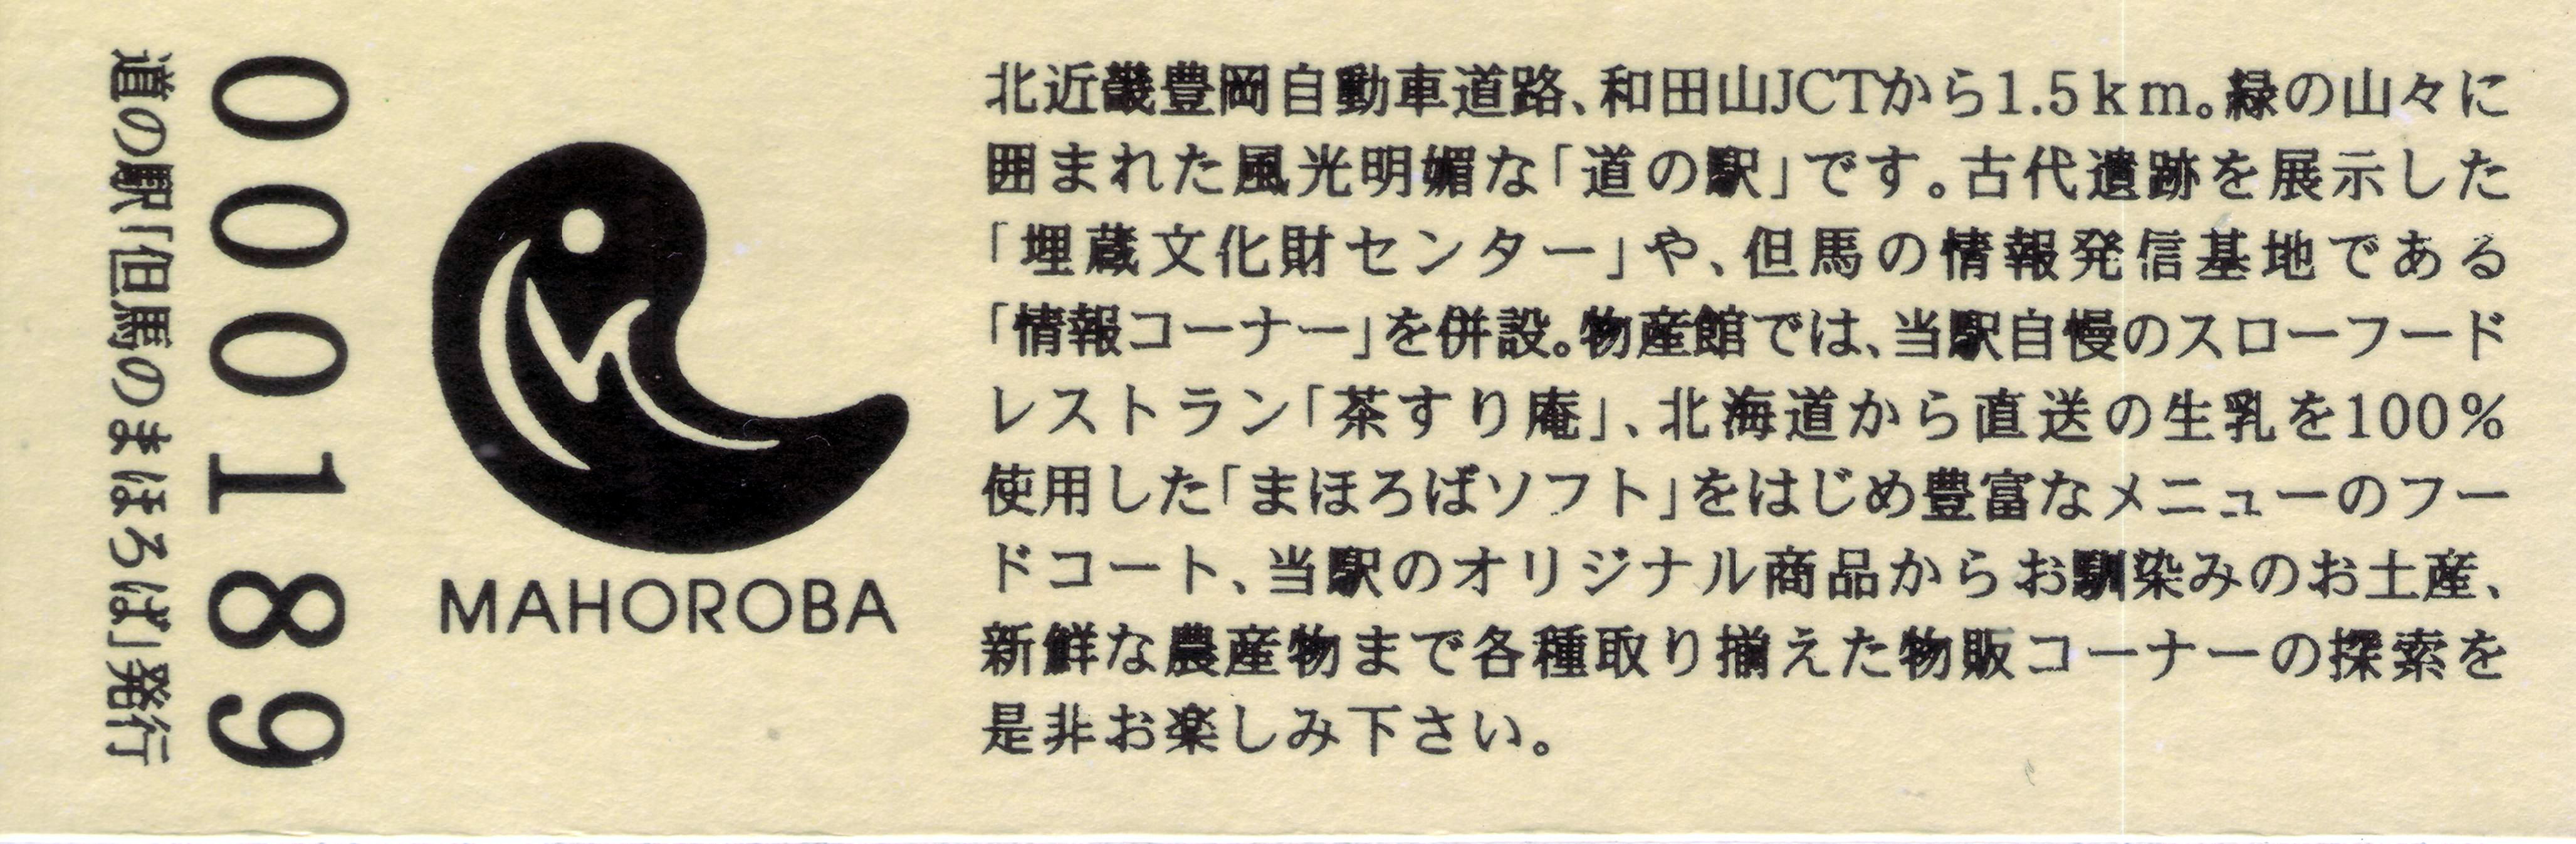 道の駅「但馬のまほろば」発行
000189
MAHOROBA
北近畿豊岡自動車道路、和田山JCTから1.5km。緑の山々に
囲まれた風光明媚な「道の駅」です。古代遺跡を展示した
「埋蔵文化財センター」や、但馬の情報発信基地である
「情報コーナー」を併設。物産館では、当駅自慢のスローフード
レストラン「茶すり庵」、北海道から直送の生乳を100%
使用した「まほろばソフト」をはじめ豊富なメニューのフー
ドコート、当駅のオリジナル商品からお馴染みのお土産、
新鮮な農産物まで各種取り揃えた物販コーナーの探索を
是非お楽しみ下さい。